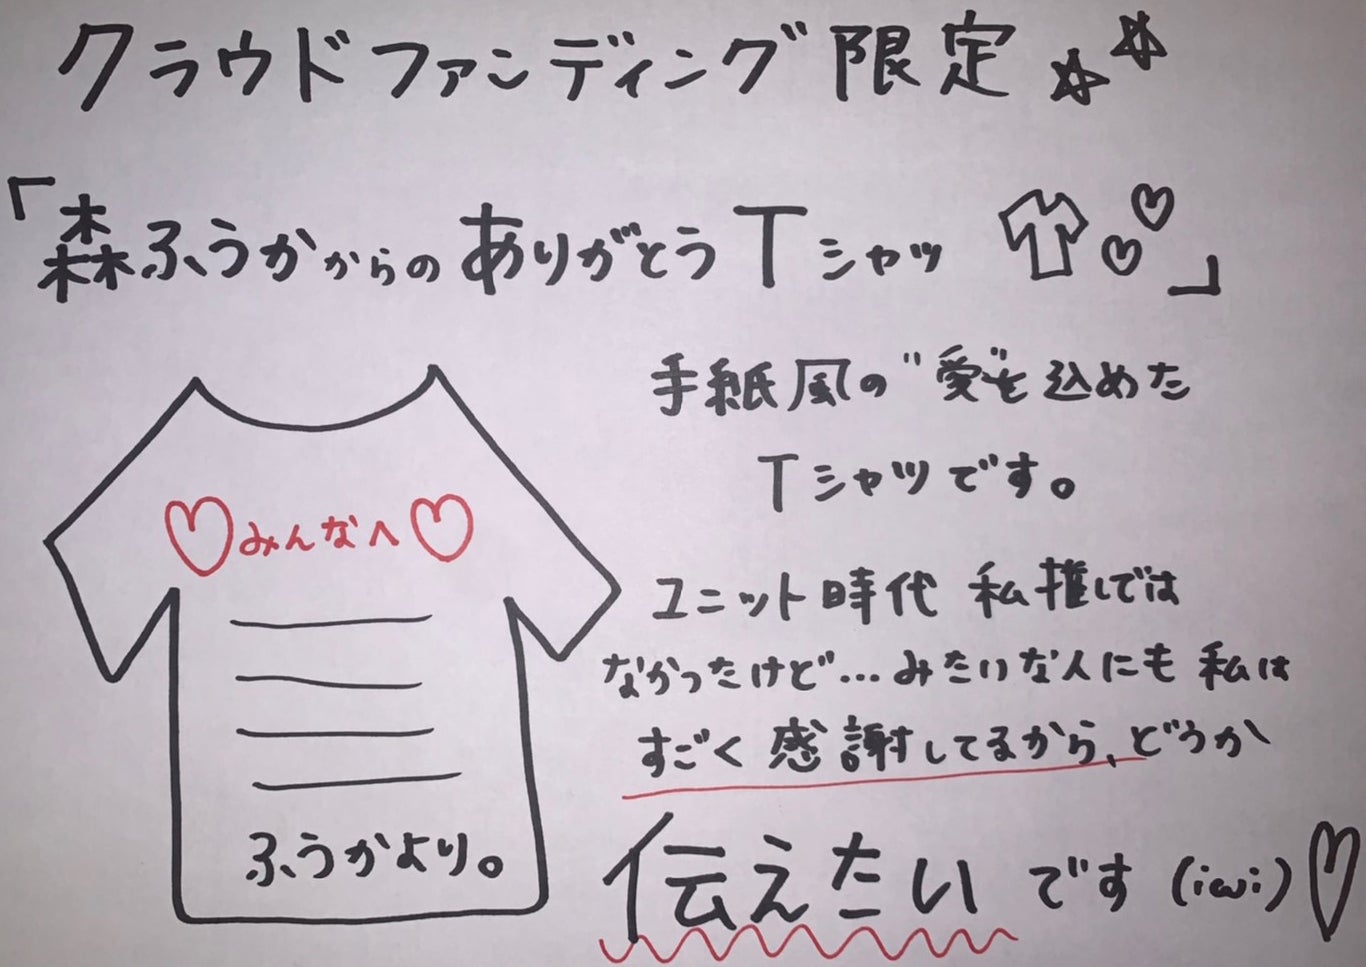 クラウドファンディング限定☆☆
「森ふうかからのありがとうTシャツ ♡♡」
手紙風の"愛"を込めた
Tシャツです。
♡みんなへ♡
ふうかより。
ユニット時代 私推しでは
なかったけど…みたいな人にも 私は
すごく感謝してるから、どうか
伝えたいです(iωi)♡